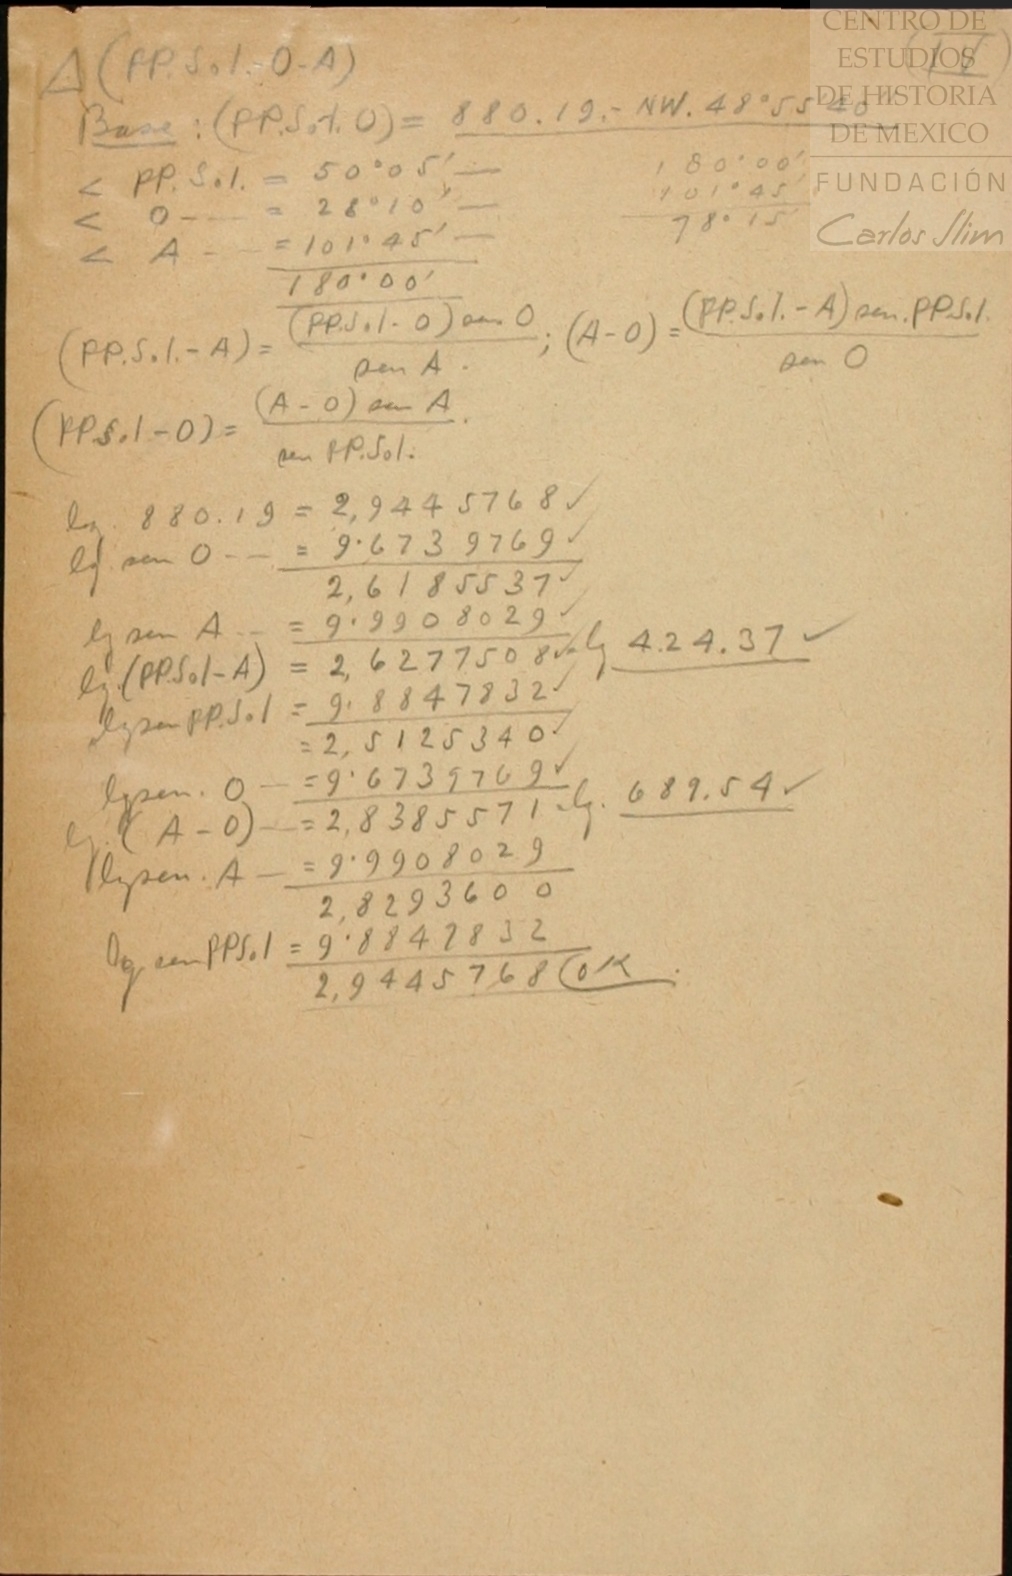 Δ (PP.Sol.-O-A) (IV)
CENTRO DE
ESTUDIOS
DE HISTORIA
DE MEXICO
FUNDACIÓN
Carlos Slim
Base: (PP.Sol.O) = 880.19.- NW. 48°55'40"
< PP.Sol. = 50°05'—
< O—— = 28°10'—
< A —— = 101°45'—
180°00'
180°00'
101°45'
78°15'
(PP.Sol.-A) = (PP.Sol.-O) sen O / sen A. ; (A-O) = (PP.Sol.-A) sen.PP.Sol. / sen O
(PP.Sol-O) = (A-O) sen A / sen PP.Sol.
log. 880.19 = 2,9445768 ✓
lg. sen O —— = 9.6739769 ✓
2,6185537 ✓
lg sen A —— = 9.9908029 ✓
lg. (PP.Sol-A) = 2,6277508 ✓ lg 424.37 ✓
lg sen PP.Sol = 9.8847832 ✓
= 2,5125340 ✓
lg sen. O — = 9.6739769 ✓
lg. (A-O) — = 2,8385571 - lg. 689.54 ✓
lg sen. A — = 9.9908029
2,8293600
lg sen PPSol = 9.8847832
2,9445768 OK.